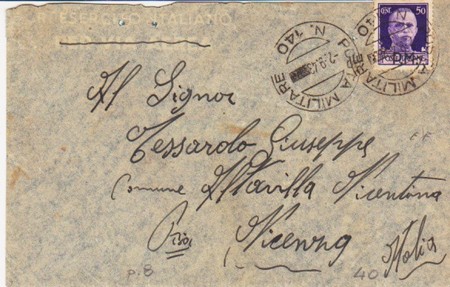 ESERCITO ITALIANO
CENT. 50
POSTA MILITARE
N. 140
POSTA MILITARE
N. 140
P.M.
Al Signor
Tessarolo Giuseppe
Comune Altavilla Vicentina
Vicenza
Italia
P.8
40
F F